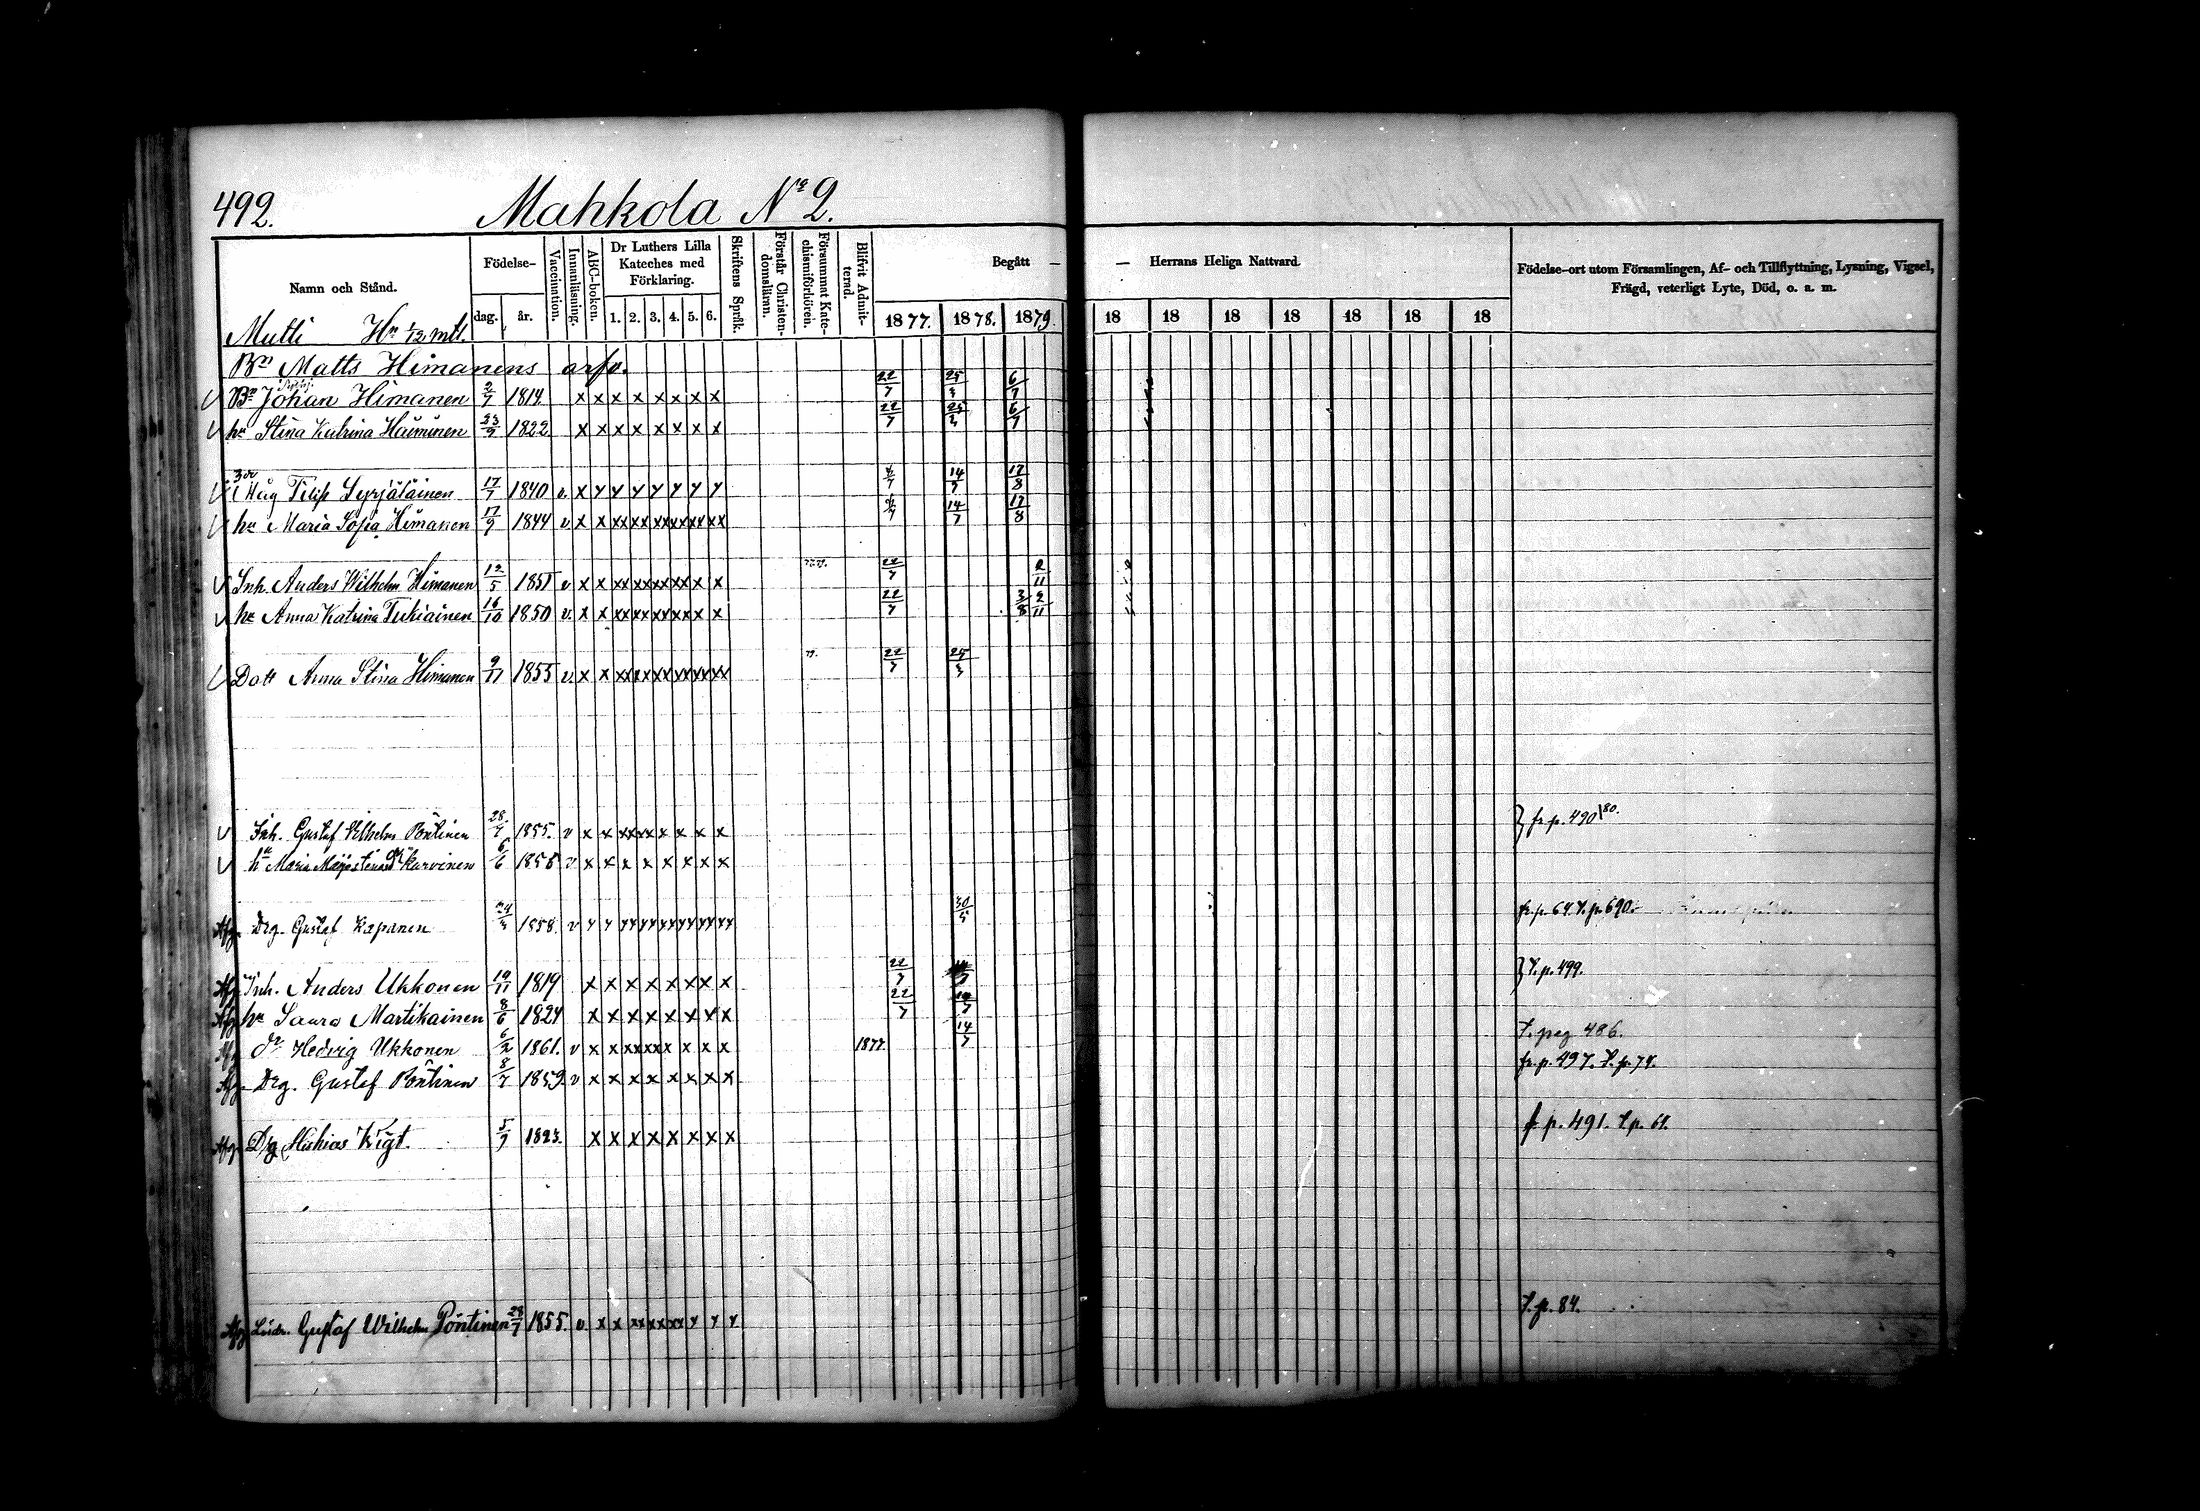 492.
Mahkola No 2.
Namn och Stånd.
Födelse-
dag.
år.
Vaccination.
Innanläsning.
ABC-boken.
Dr Luthers Lilla Kateches med Förklaring.
1. 2. 3. 4. 5. 6.
Skriftens Språk.
Förstår Christendomslärän.
Försummat Katechismiförhören.
Blifvit Admitterad.
Begått — — Herrans Heliga Nattvard.
1877. 1878. 1879. 18 18 18 18 18 18 18
Födelse-ort utom Församlingen, Af- och Tillflyttning, Lysning, Vigsel,
Frägd, veterligt Lyte, Död, o. a. m.
Multi Hn 1/12 mtl.
Bn Matts Himanens arfv.
Bn Johan Himanen 2/7 1814 x x x x x x x x 22/7 25/3 6/7
hu Stina Katrina Häiminen 23/9 1822 x x x x x x x x 22/7 25/3 6/7
Måg Filip Syrjäläinen 17/7 1840 v. 14/7 17/8
hu Maria Sofia Himanen 17/9 1844 v 14/7 17/8
Inh. Anders Wilhelm Himanen 12/5 1851 v 22/7 2/11
hu Anna Katrina Tukiainen 16/10 1850 v. 22/7 3/8 2/11
Dott Anna Stina Himanen 9/11 1855 v 22/7 25/3
Inh. Gustaf Vilhelm Pöntinen 28/7 1855. v } fr. p. 490 80.
hu Maria Karvinen 6/6 1858 v
Afg. Drg. Gustaf Kapanen 24/3 1858. v 30/5 fr. p. 64. T. p. 690.
Afg Inh. Anders Ukkonen 19/11 1819 x x x x x x x x 22/7 } T. p. 499.
Afg hu Laura Martikainen 8/6 1824 x x x x x x x x 22/7 14/7
Afg dr Hedvig Ukkonen 6/2 1861. v 1877. 14/7 T. pag 486.
Afg. Drg. Gustaf Pöntinen 8/7 1859 v x x x x x x x x fr. p. 497. T. p. 74.
Afg. Drg Mathias Vigt. 5/7 1823. x x x x x x x x f. p. 491. T. p. 61.
Afg Gustaf Wilhelm Pöntinen 28/7 1855. v T. p. 84.